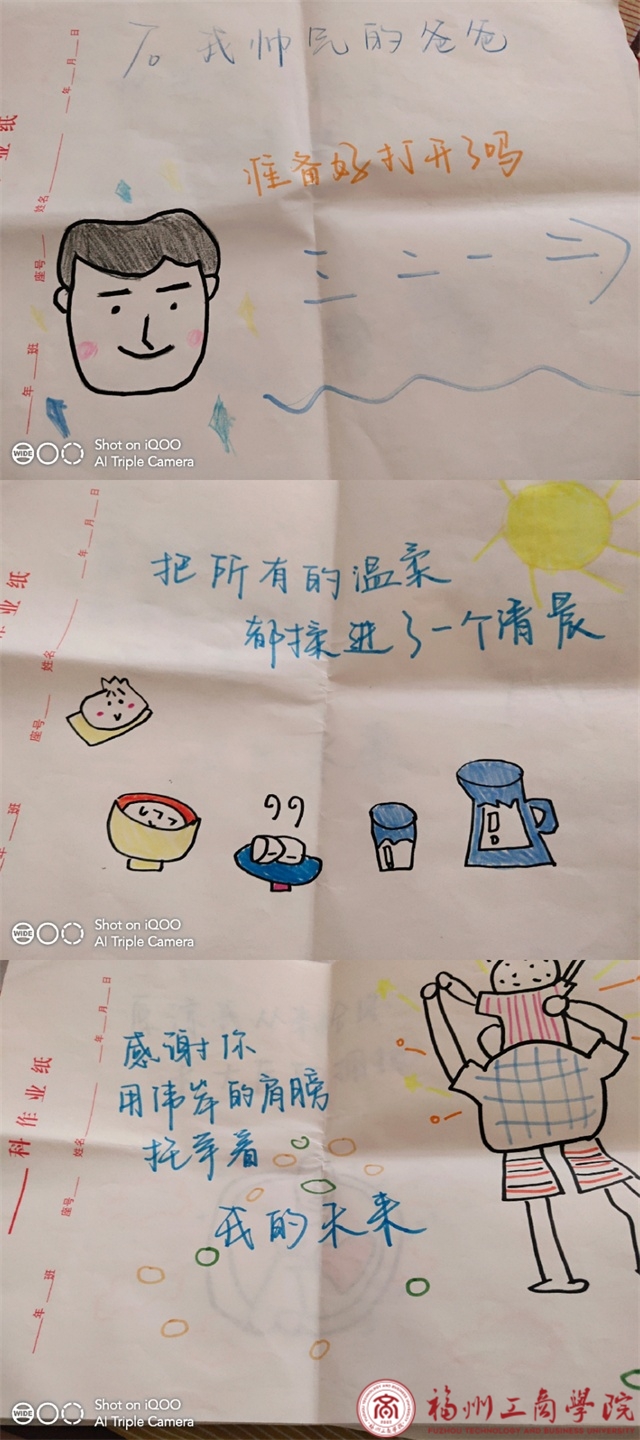 To 我帅气的爸爸
准备好打开了吗
业纸
年 月 日
姓名
座号
年 班
WIDE
Shot on iQOO
AI Triple Camera
把所有的温柔
都揉进了一个清晨
作业纸
年 月 日
姓名
座号
年 班
WIDE
Shot on iQOO
AI Triple Camera
感谢你
用伟岸的肩膀
托举着
我的未来
科作业纸
年 月 日
姓名
座号
年 班
WIDE
Shot on iQOO
AI Triple Camera
福州工商学院
FUZHOU TECHNOLOGY AND BUSINESS UNIVERSITY